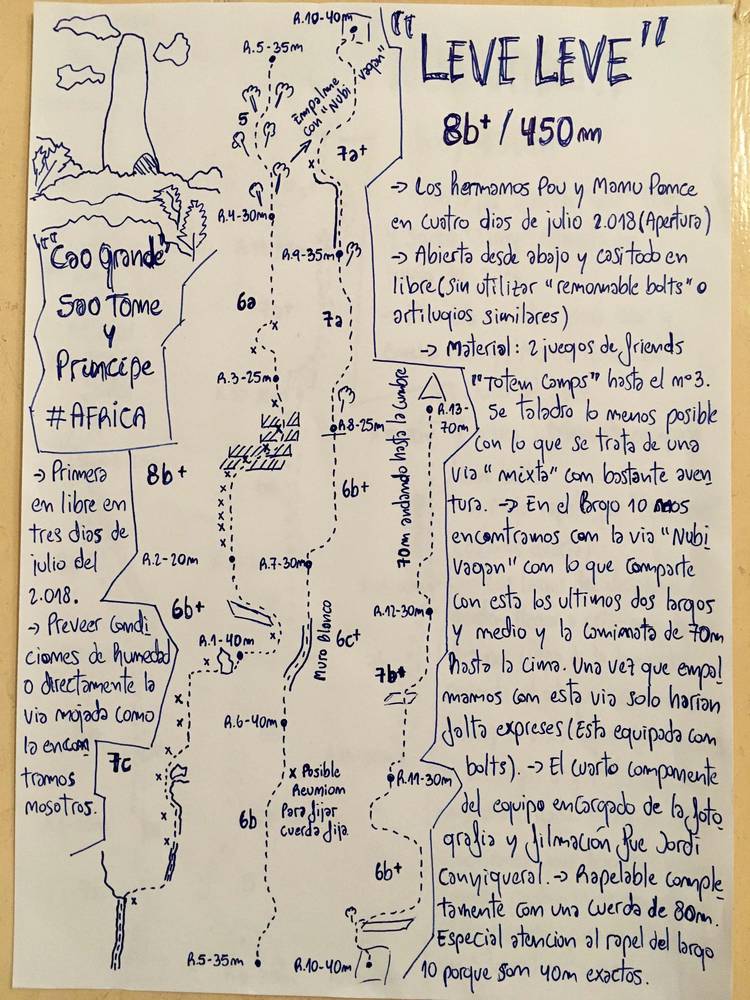 "LEVE LEVE"
8b+ / 450m
→ Los hermanos Pou y Manu Ponce
en cuatro dias de julio 2.018 (Apertura)
→ Abierta desde abajo y casi todo en
libre (sin utilizar "removable bolts" o
artilugios similares)
→ Material: 2 juegos de friends
"Totem Camps" hasta el nº 3.
Se taladro lo menos posible
con lo que se trata de una
via "mixta" con bastante aven
tura. → En el largo 10 nos
encontramos con la via "Nubi
vagan" con lo que comparte
con esta los ultimos dos largos
y medio y la caminata de 70m
hasta la cima. Una vez que empal
mamos con esta via solo harian
falta expreses (Esta equipada con
bolts). → El cuarto componente
del equipo encargado de la foto
grafia y filmación fue Jordi
Canyigueral. → Rapelable comple
tamente con una cuerda de 80m.
Especial atencion al rapel del largo
10 porque son 40m exactos.
"Cao Grande"
Sao Tome
y
Principe
#AFRICA
→ Primera
en libre en
tres dias de
julio del
2.018.
→ Preveer condi
ciones de humedad
o directamente la
via mojada como
la encon
tramos
nosotros.
7c
R.1-40m
6b+
R.2-20m
8b+
R.3-25m
6a
R.4-30m
5
R.5-35m
R.5-35m
6b
x Posible
Reunion
Para fijar
cuerda fija
R.6-40m
6c+
Muro Blanco
R.7-30m
6b+
R.8-25m
7a
R.9-35m
7a+
Empalme
con "Nubi
vagan"
R.10-40m
R.10-40m
6b+
R.11-30m
7b+
R.12-30m
70m andando hasta la cumbre
R.13-
70m